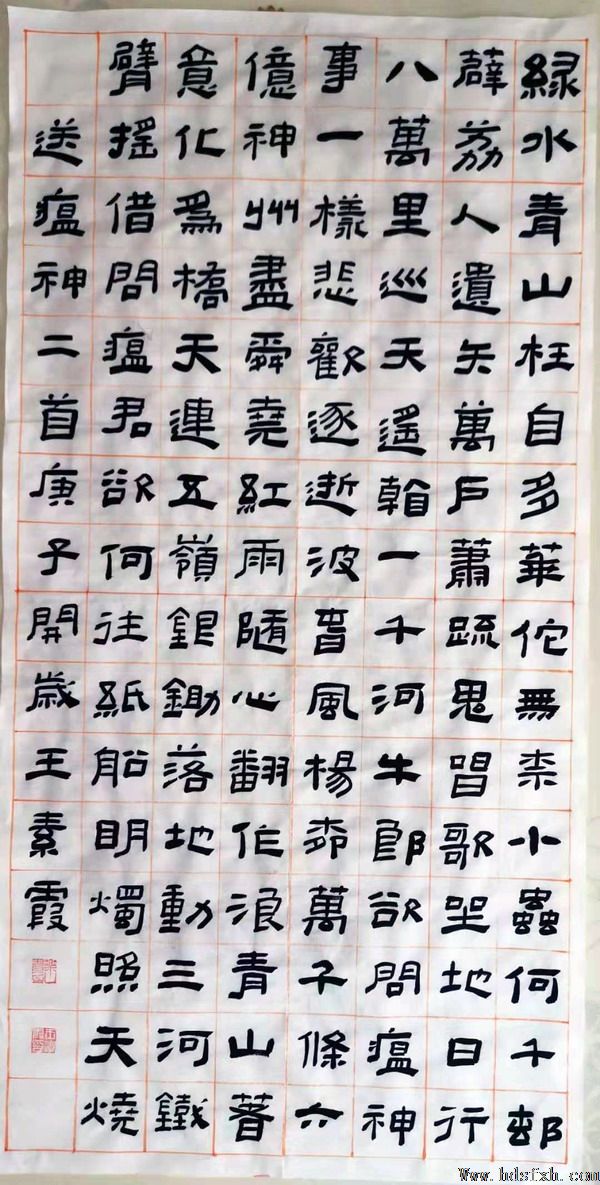 緑水青山枉自多華佗無柰小蟲何千邨
薜荔人遺矢萬戶蕭疏鬼唱歌坐地日行
八萬里巡天遙翰一千河牛郎欲問瘟神
事一樣悲歡逐逝波春風楊柳萬千條六
億神州盡舜堯紅雨隨心翻作浪青山著
意化爲橋天連五嶺銀鋤落地動三河鐵
臂搖借問瘟君欲何往紙船明燭照天燒
送瘟神二首庚子開歲王素霞
Www.hdsfxh.com